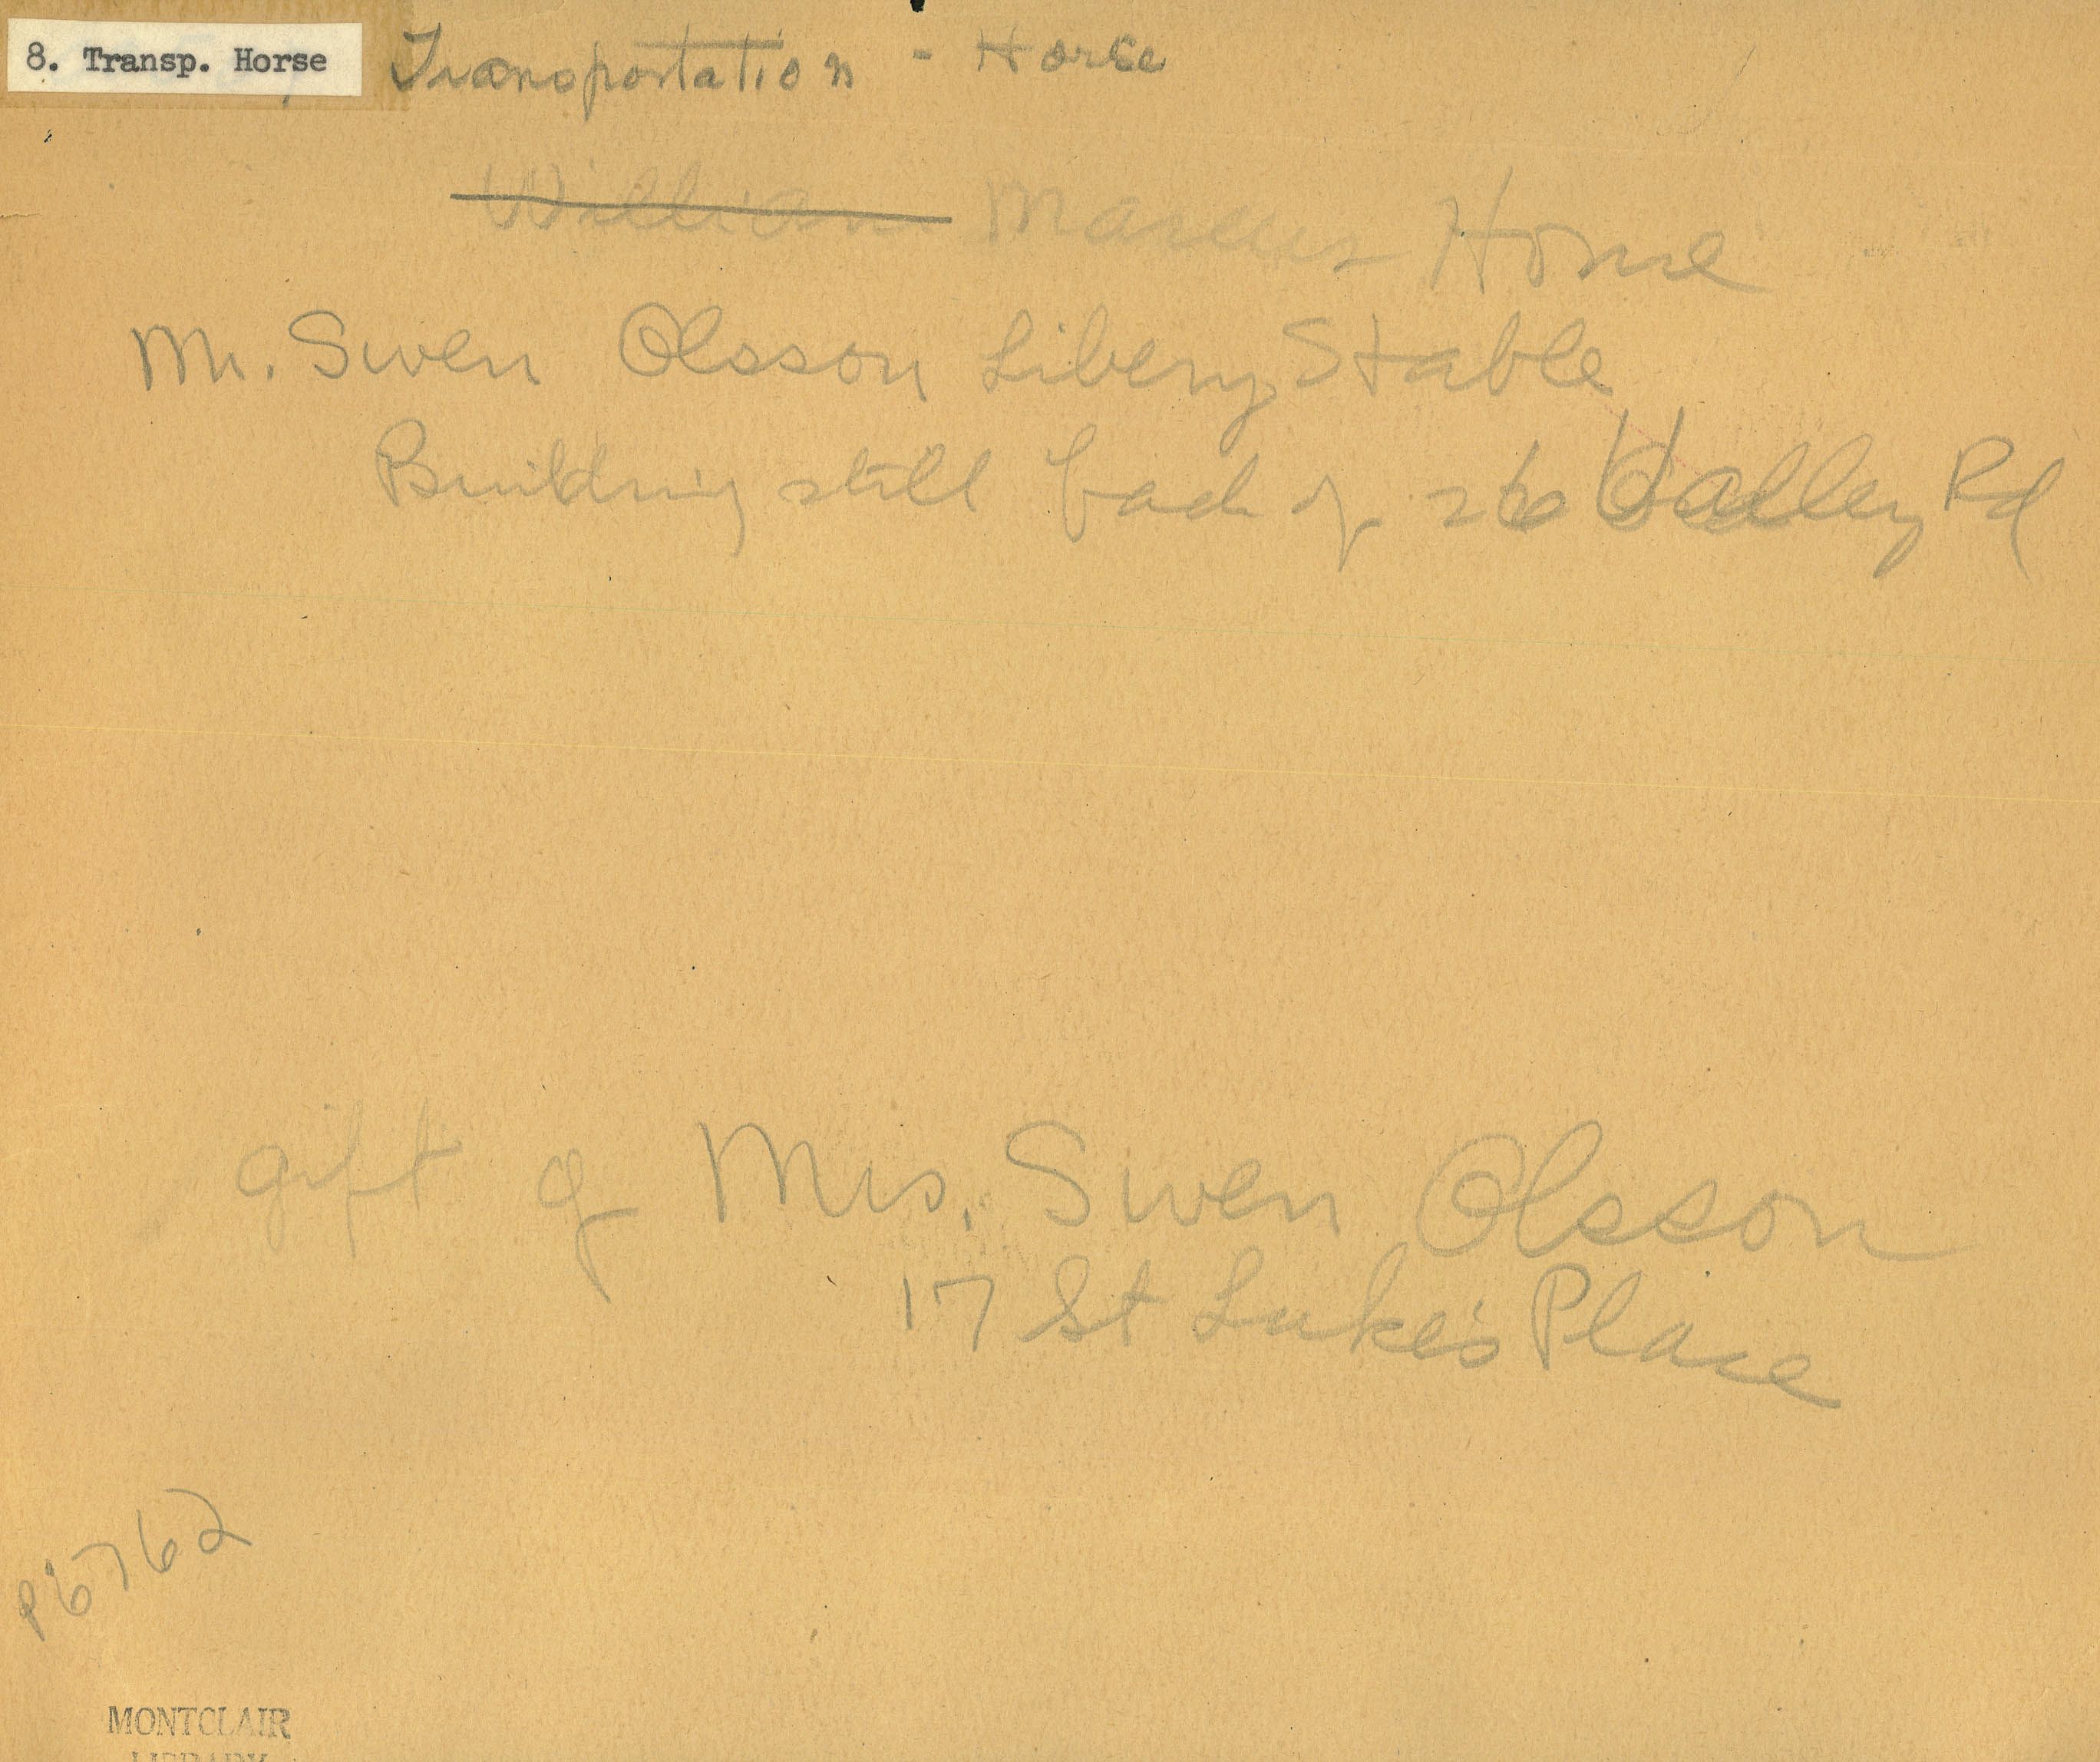 8. Transp. Horse
Transportation - Horse
William Marcus Horne
Mr. Swen Olsson Libery Stable
Building still back of 26 Valley Rd
gift of Mrs. Swen Olsson
17 St Luke's Place
P6762
MONTCLAIR
LIBRARY